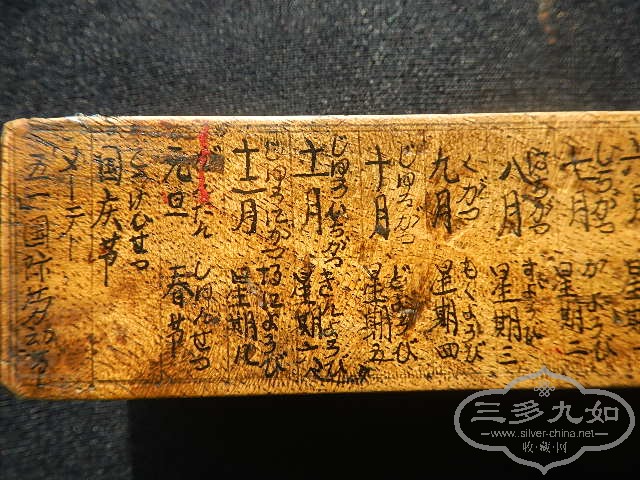 しちがつ かようび
七月 星期二
はちがつ
八月 星期三
くがつ もくようび
九月 星期四
じゅうがつ どようび
十月 星期五
じゅういちがつ きんようび
十一月 星期六
じゅうにがつ
十二月 星期
がんたん しゅんせつ
元旦 春节
国庆节
メーデー
五一国际劳动节
三多九如
www.silver-china.net
收·藏·网